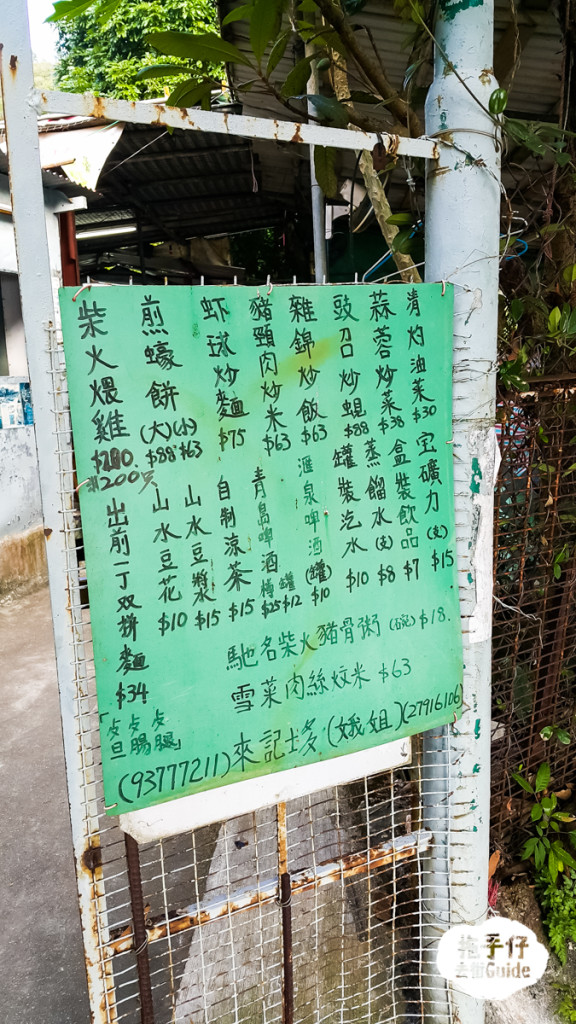 柴火煨雞 $200 $200一只
煎蠔餅 (大) $88 (小) $63
虾球炒麵 $75
豬頸肉炒米 $63
雜錦炒飯 $63
豉召炒蜆 $88
蒜蓉炒菜 $38
清灼油菜 $30
出前一丁双拼麵 $34
「攴攴攴
旦腸腿」
山水豆花 $10
山水豆漿 $15
自制涼茶 $15
青島啤酒 樽$25 罐$12
滙泉啤酒 (罐) $10
罐裝汽水 $10
蒸餾水 (支) $8
盒裝飲品 $7
宝礦力 (支) $15
馳名柴火豬骨粥 (碗) $18.
雪菜肉絲炆米 $63
(93777211) 來記士多 (娥姐) (27916106)
拖手仔
去街Guide